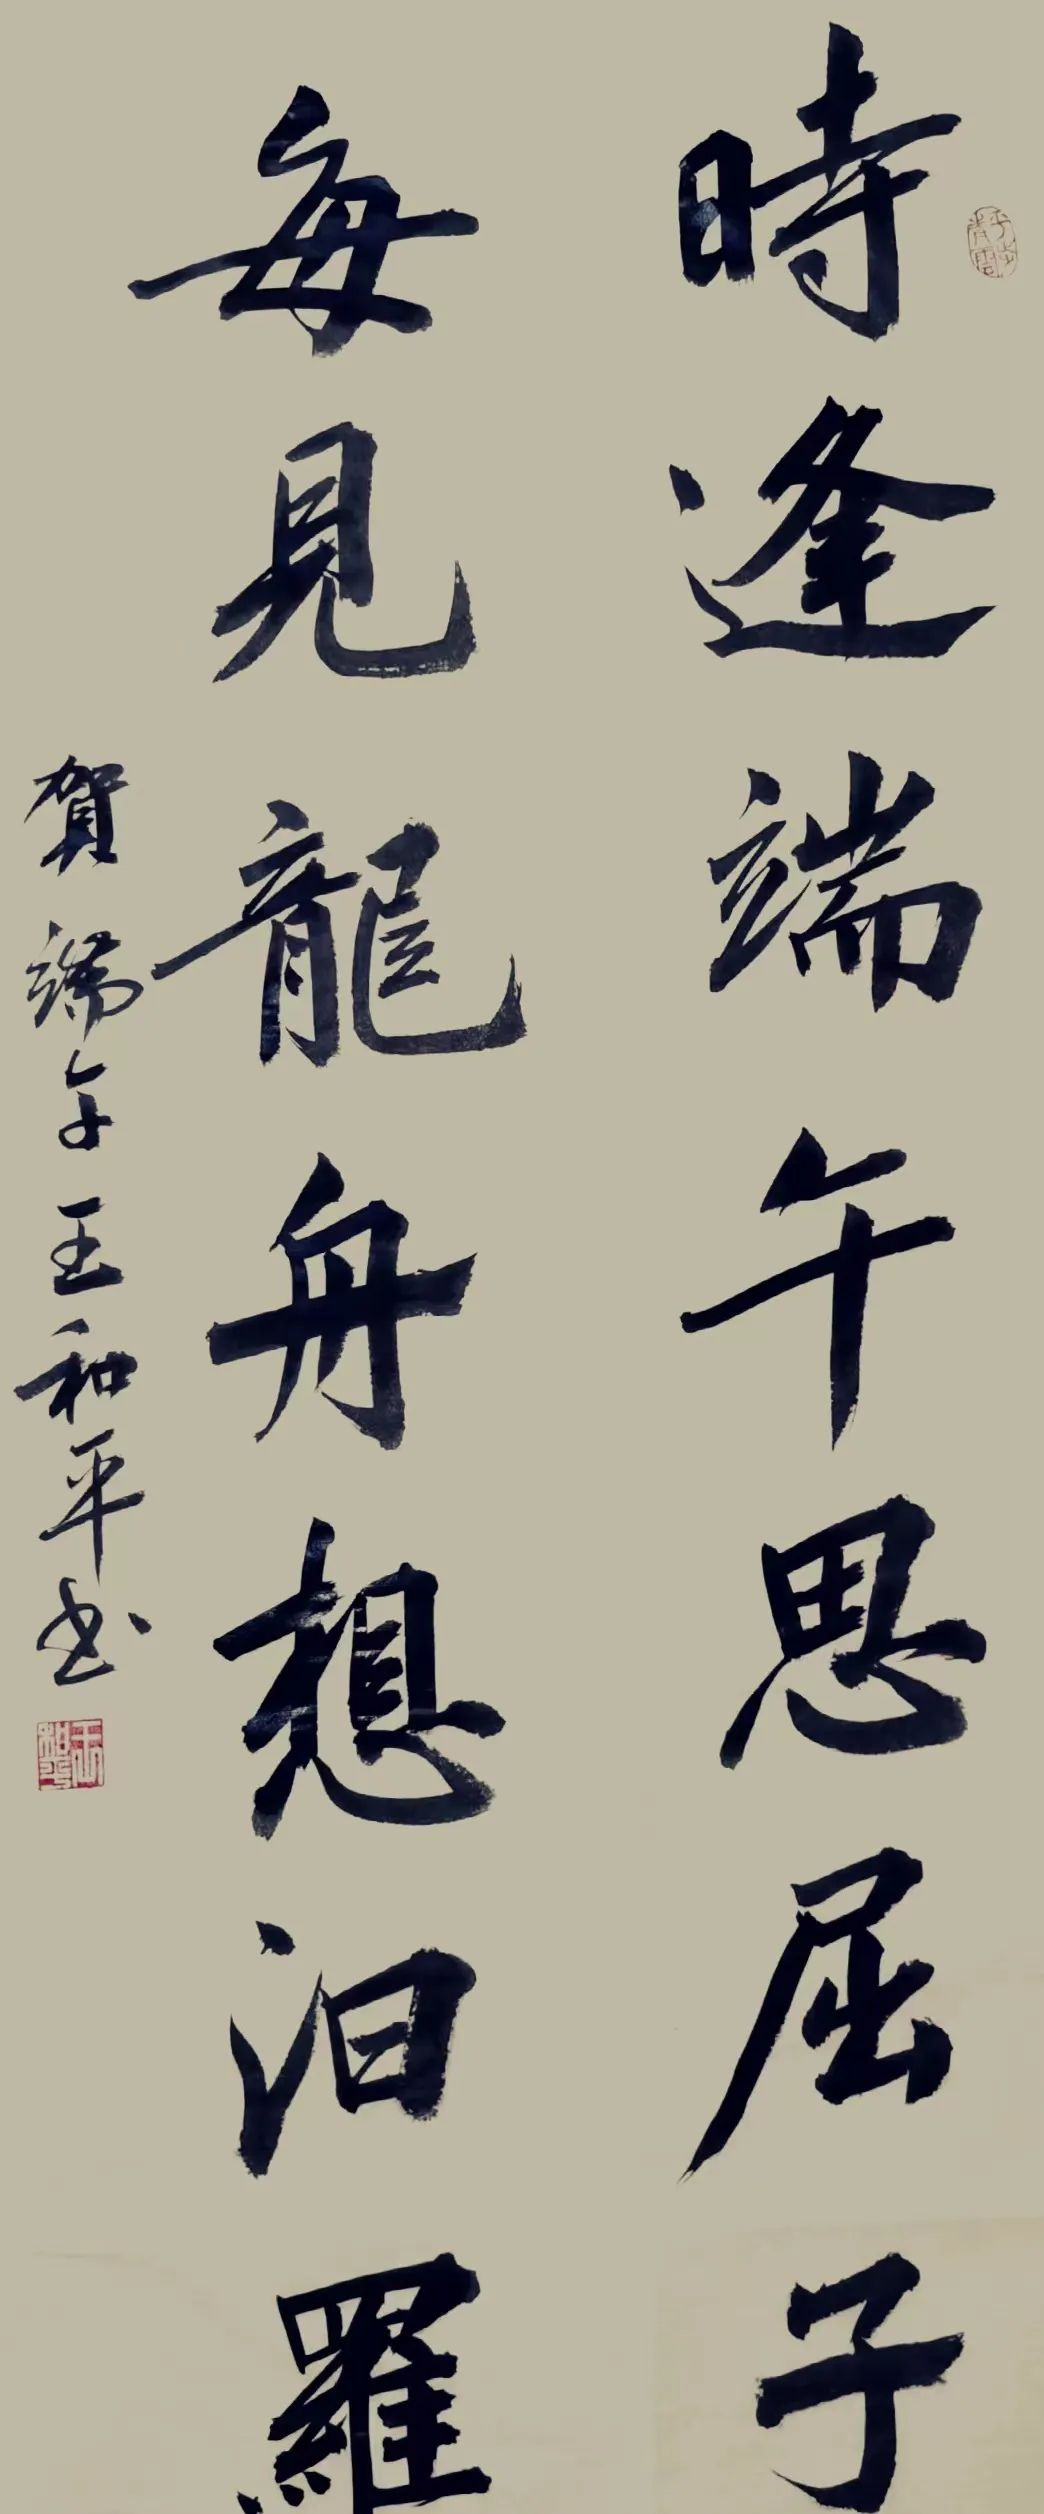 時逢端午思屈子
每見龍舟想汨羅
賀端午王和平书